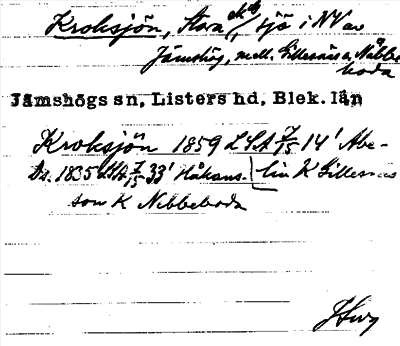 Kroksjön, Stora, sjö i NV av
Jämshög, mell. Gillesnäs o. Nibbe-
boda
Jämshögs sn, Listers hd, Blek. län
Kroksjön 1859 LSA 7/15 14' Abe-
Ds. 1835 LSA 7/15 33' Håkans- lin K Gillesnäs
son K Nibbeboda